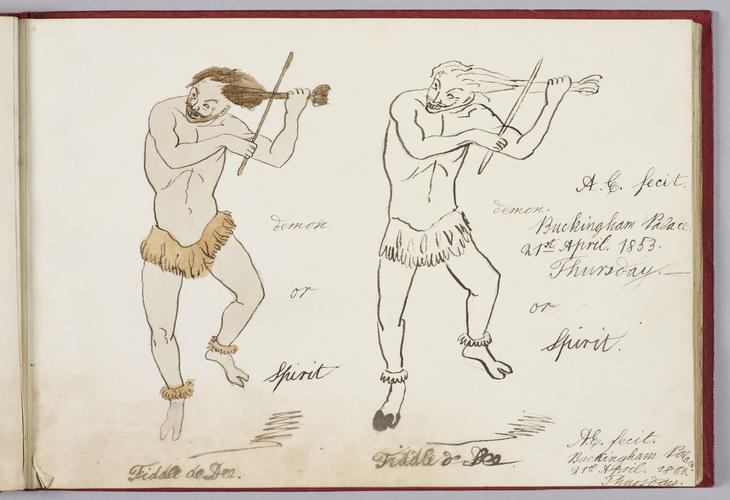 demon.
or
Spirit
Fiddle de Dee.
demon.
A. E. fecit.
Buckingham Palace.
21st April. 1853.
Thursday.
or
Spirit.
Fiddle d Dee
A.E. fecit.
Buckingham
21st April.
Thursday.